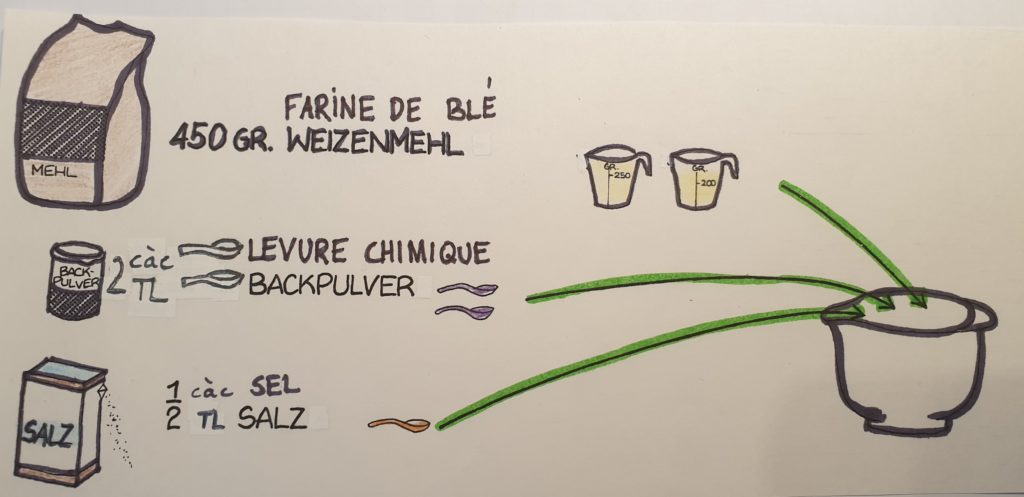 FARINE DE BLÉ
450 GR. WEIZENMEHL
MEHL
GR.
-250
GR.
-200
BACK-
PULVER
2 càc LEVURE CHIMIQUE
TL BACKPULVER
SALZ
1/2 càc SEL
TL SALZ